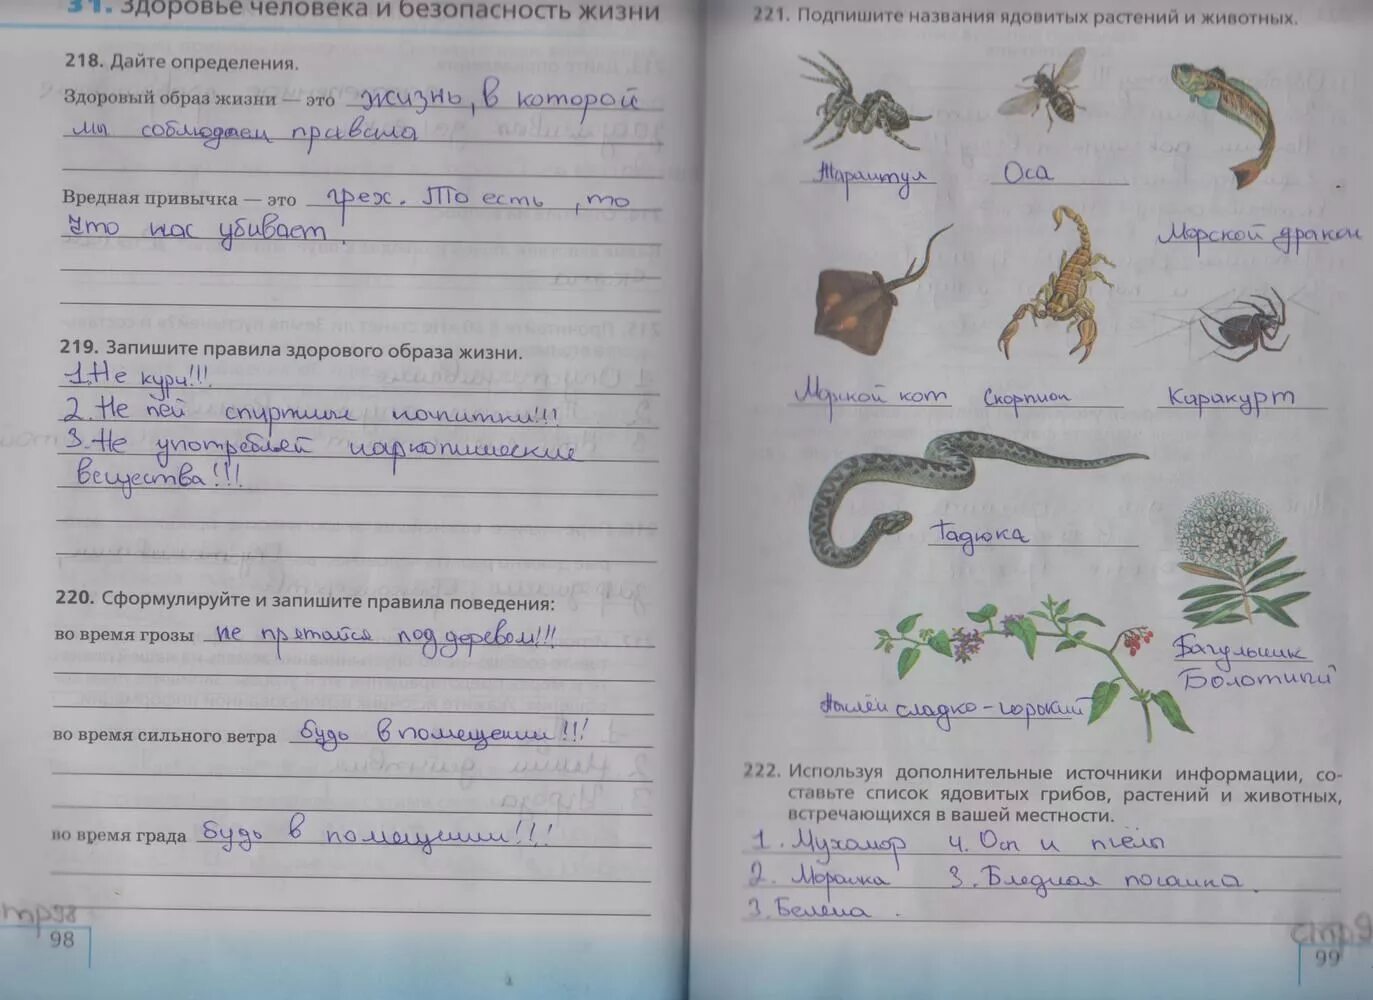 31. Здоровье человека и безопасность жизни
218. Дайте определения.
Здоровый образ жизни — это жизнь, в которой
мы соблюдаем правила
Вредная привычка — это грех. То есть, то
что нас убивает.
219. Запишите правила здорового образа жизни.
1. Не кури!!!
2. Не пей спиртные напитки!!!
3. Не употребляй наркотические
вещества!!!
220. Сформулируйте и запишите правила поведения:
во время грозы не прятайся под деревом!!!
во время сильного ветра будь в помещении!!!
во время града будь в помещении!!!
стр98
98
221. Подпишите названия ядовитых растений и животных.
Тарантул Оса
Морской дракон
Морской кот Скорпион Каракурт
Гадюка
Багульник
Болотный
Паслён сладко-горький
222. Используя дополнительные источники информации, со-
ставьте список ядовитых грибов, растений и животных,
встречающихся в вашей местности.
1. Мухомор 4. Осы и пчёлы
2. 3. Бледная поганка.
3. Белена.
стр9
99